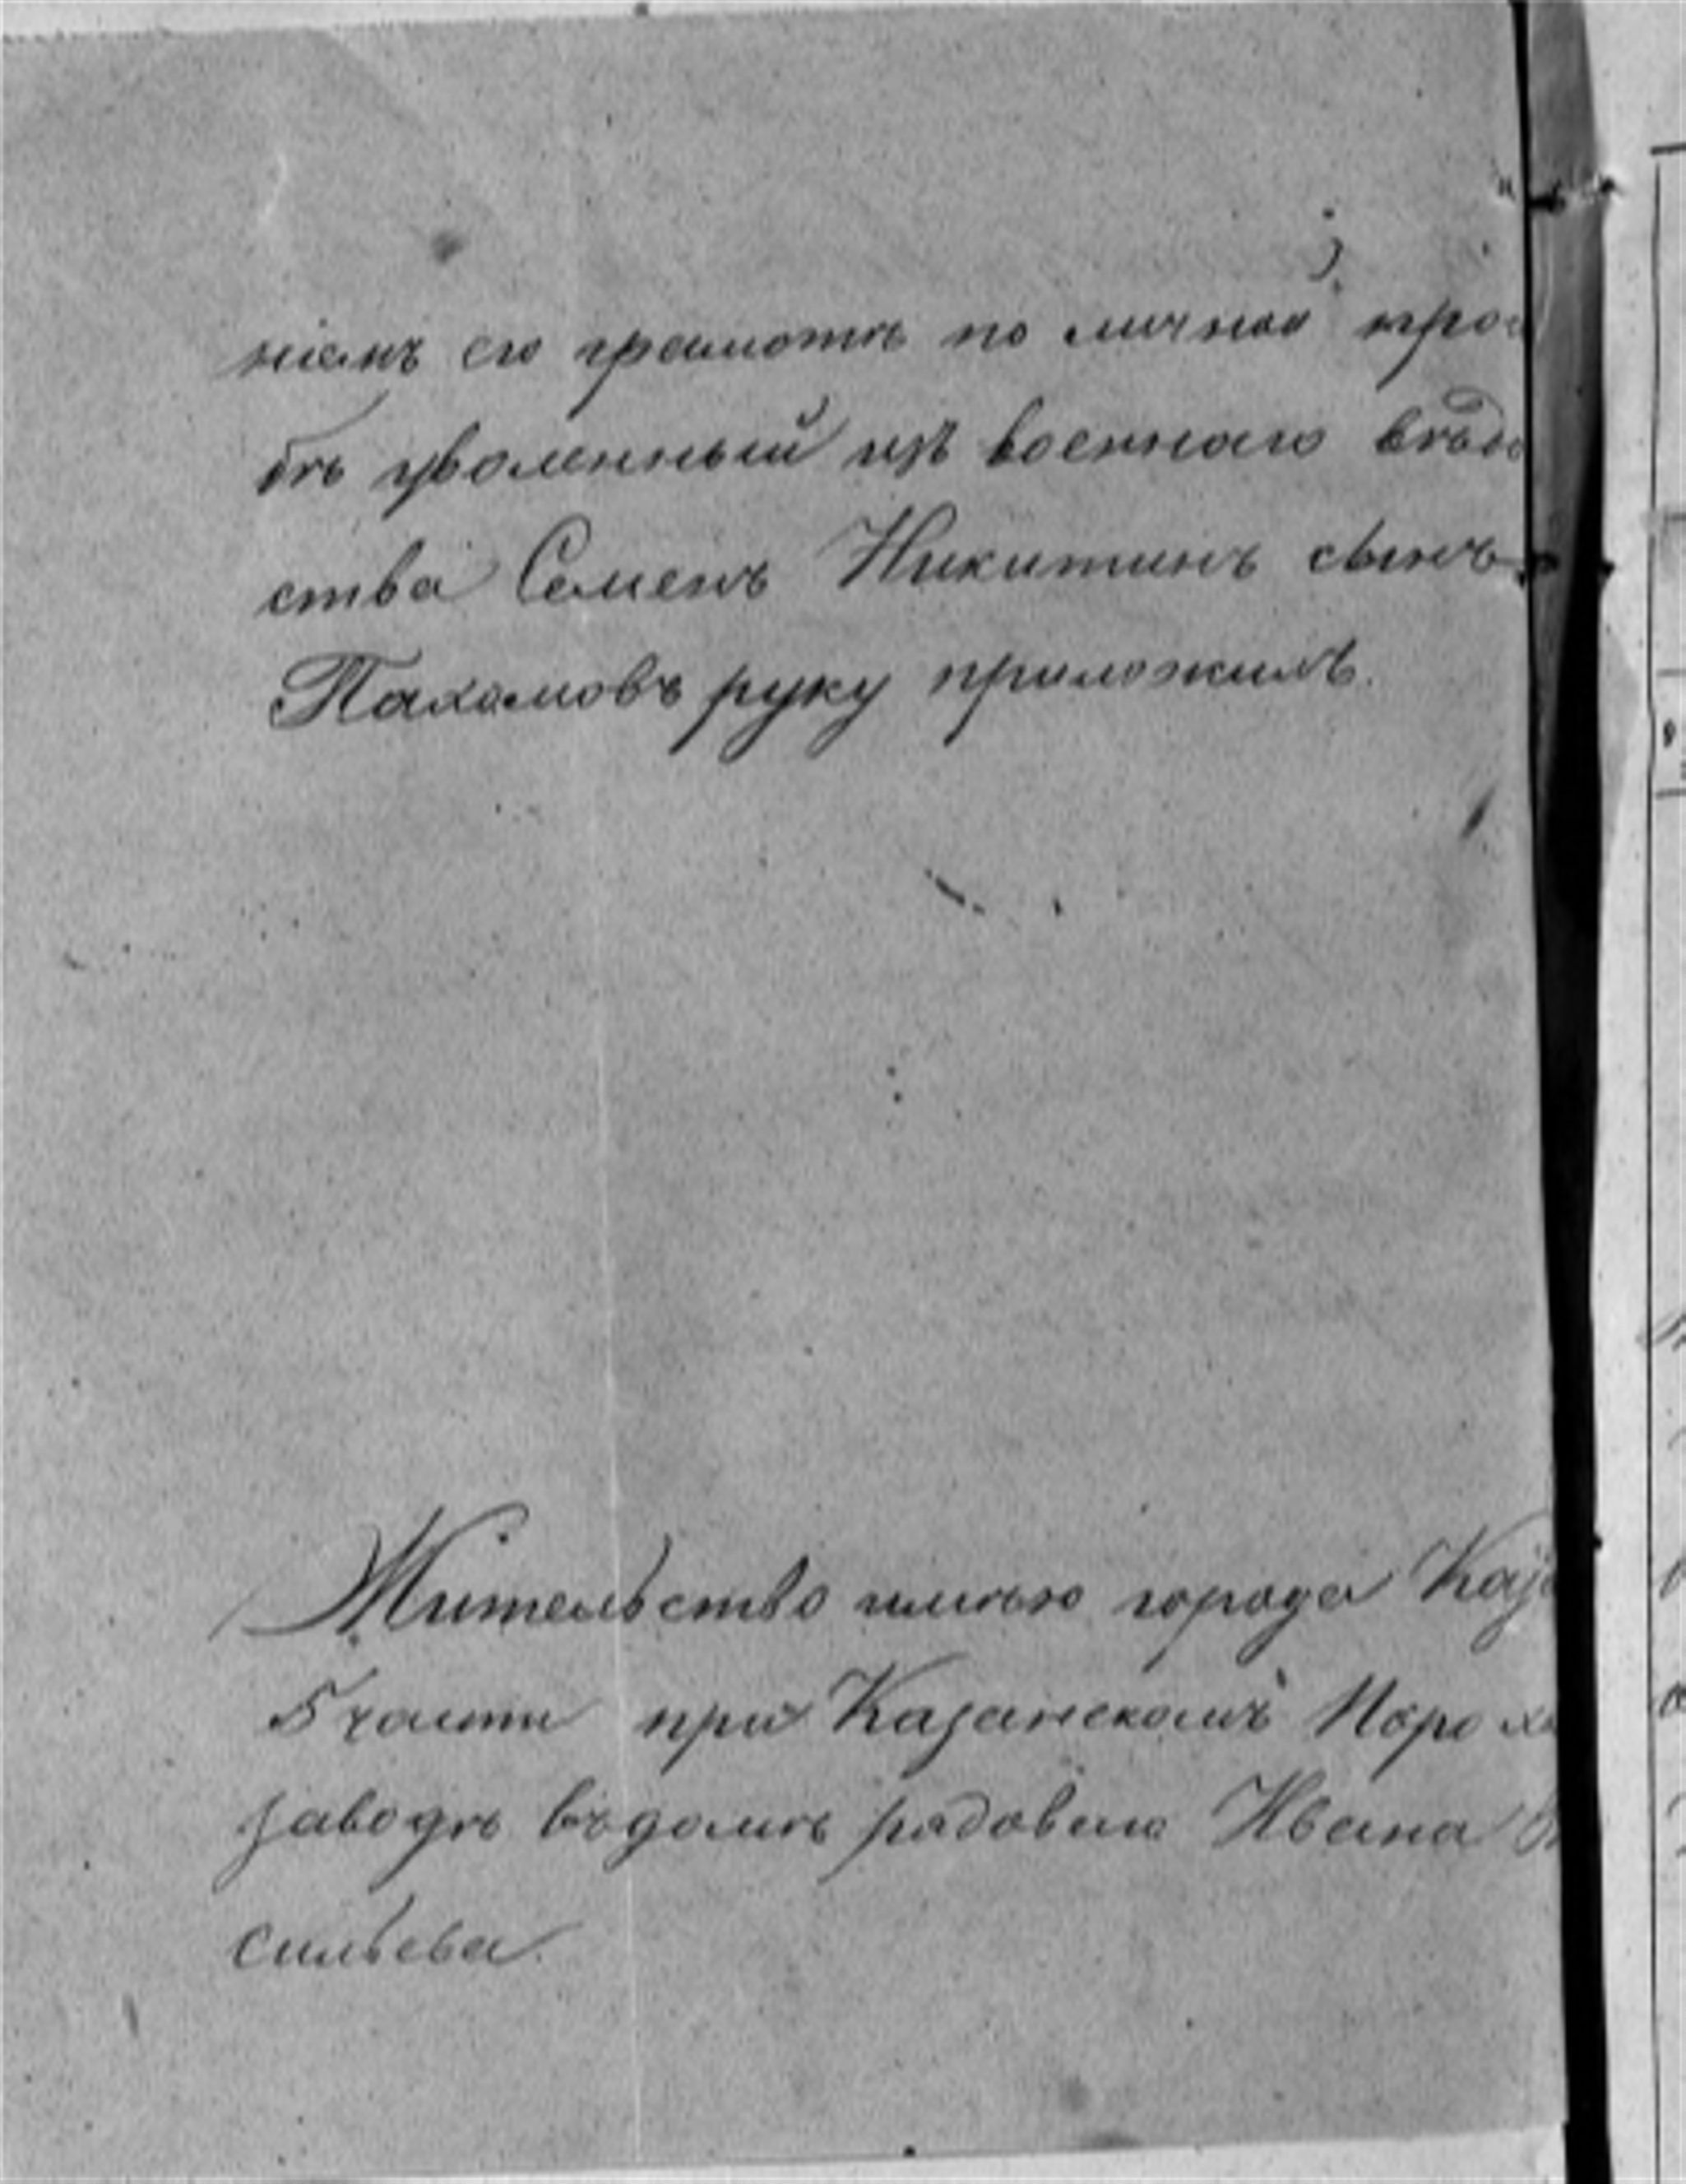 ніемъ его грамотѣ по личной прос
бѣ уволенный изъ военнаго вѣдо
ства Семенъ Никитинъ сынъ
Пахомовъ руку приложилъ.
Жительство имѣю города Каза
5 части при Казанскомъ Порохо
заводѣ въ домѣ рядоваго Ивана Ва
сильева.